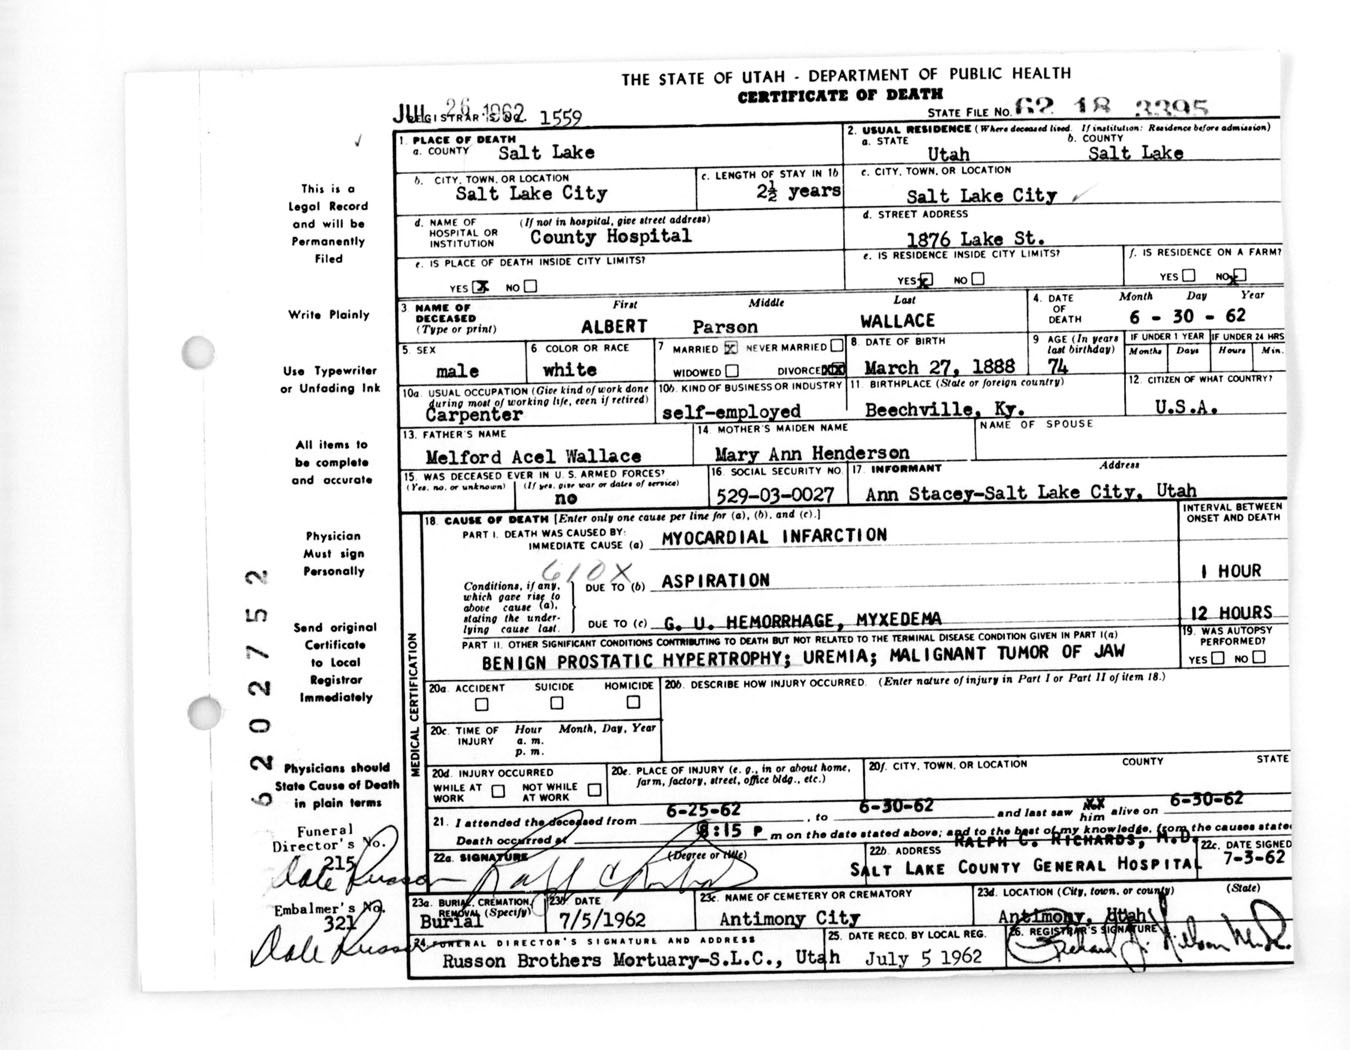 THE STATE OF UTAH - DEPARTMENT OF PUBLIC HEALTH
CERTIFICATE OF DEATH
JUL 26 1962
REGISTRAR'S NO. 1559
STATE FILE NO. 62 18 3395
1. PLACE OF DEATH
a. COUNTY Salt Lake
2. USUAL RESIDENCE (Where deceased lived. If institution: Residence before admission)
a. STATE Utah b. COUNTY Salt Lake
b. CITY, TOWN, OR LOCATION Salt Lake City
c. LENGTH OF STAY IN 1b 2½ years
c. CITY, TOWN, OR LOCATION Salt Lake City
d. NAME OF HOSPITAL OR INSTITUTION (If not in hospital, give street address) County Hospital
d. STREET ADDRESS 1876 Lake St.
e. IS PLACE OF DEATH INSIDE CITY LIMITS?
YES X NO
e. IS RESIDENCE INSIDE CITY LIMITS?
YES x NO
f. IS RESIDENCE ON A FARM?
YES NO x
3 NAME OF DECEASED (Type or print)
First Middle Last
ALBERT Parson WALLACE
4. DATE OF DEATH Month Day Year
6 - 30 - 62
5. SEX male
6. COLOR OR RACE white
7 MARRIED X NEVER MARRIED
WIDOWED DIVORCED XX
8. DATE OF BIRTH March 27, 1888
9 AGE (In years last birthday) 74
IF UNDER 1 YEAR Months Days
IF UNDER 24 HRS Hours Min.
10a. USUAL OCCUPATION (Give kind of work done during most of working life, even if retired) Carpenter
10b. KIND OF BUSINESS OR INDUSTRY self-employed
11. BIRTHPLACE (State or foreign country) Beechville, Ky.
12. CITIZEN OF WHAT COUNTRY? U.S.A.
13. FATHER'S NAME Melford Acel Wallace
14. MOTHER'S MAIDEN NAME Mary Ann Henderson
NAME OF SPOUSE
15. WAS DECEASED EVER IN U. S. ARMED FORCES?
(Yes, no, or unknown) (If yes, give war or dates of service) no
16. SOCIAL SECURITY NO. 529-03-0027
17. INFORMANT Address
Ann Stacey-Salt Lake City, Utah
18. CAUSE OF DEATH [Enter only one cause per line for (a), (b), and (c).]
INTERVAL BETWEEN ONSET AND DEATH
PART I. DEATH WAS CAUSED BY:
IMMEDIATE CAUSE (a) MYOCARDIAL INFARCTION
610X
Conditions, if any, which gave rise to above cause (a), stating the underlying cause last.
DUE TO (b) ASPIRATION 1 HOUR
DUE TO (c) G. U. HEMORRHAGE, MYXEDEMA 12 HOURS
PART II. OTHER SIGNIFICANT CONDITIONS CONTRIBUTING TO DEATH BUT NOT RELATED TO THE TERMINAL DISEASE CONDITION GIVEN IN PART I(a)
BENIGN PROSTATIC HYPERTROPHY; UREMIA; MALIGNANT TUMOR OF JAW
19. WAS AUTOPSY PERFORMED?
YES NO
MEDICAL CERTIFICATION
20a. ACCIDENT SUICIDE HOMICIDE
20b. DESCRIBE HOW INJURY OCCURRED. (Enter nature of injury in Part I or Part II of item 18.)
20c. TIME OF INJURY Hour Month, Day, Year
a. m.
p. m.
20d. INJURY OCCURRED
WHILE AT WORK NOT WHILE AT WORK
20e. PLACE OF INJURY (e. g., in or about home, farm, factory, street, office bldg., etc.)
20f. CITY, TOWN, OR LOCATION COUNTY STATE
21. I attended the deceased from 6-25-62, to 6-30-62 and last saw him alive on 6-30-62
Death occurred at 8:15 P m on the date stated above; and to the best of my knowledge, from the causes state
22a. SIGNATURE (Degree or title)
Ralph C. Richards
22b. ADDRESS
RALPH C. RICHARDS, M.D.
SALT LAKE COUNTY GENERAL HOSPITAL
22c. DATE SIGNED 7-3-62
23a. BURIAL, CREMATION, REMOVAL (Specify) Burial
23b DATE 7/5/1962
23c. NAME OF CEMETERY OR CREMATORY Antimony City
23d. LOCATION (City, town, or county) (State)
Antimony, Utah
24 FUNERAL DIRECTOR'S SIGNATURE AND ADDRESS
Russon Brothers Mortuary-S.L.C., Utah
25. DATE RECD. BY LOCAL REG. July 5 1962
26. REGISTRAR'S SIGNATURE
This is a
Legal Record
and will be
Permanently
Filed
Write Plainly
Use Typewriter
or Unfading Ink
All items to
be complete
and accurate
Physician
Must sign
Personally
Send original
Certificate
to Local
Registrar
Immediately
Physicians should
State Cause of Death
in plain terms
Funeral
Director's No.
215
Dale Russon
Embalmer's No.
321
Dale Russon
6202752